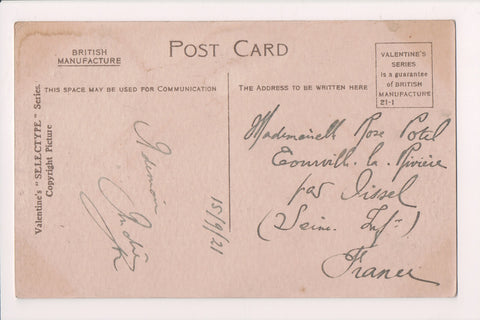 BRITISH
MANUFACTURE
POST CARD
VALENTINE'S
SERIES
is a guarantee
of BRITISH
MANUFACTURE
21-1
THIS SPACE MAY BE USED FOR COMMUNICATION
THE ADDRESS TO BE WRITTEN HERE
Valentine's "SELECTYPE" Series.
Copyright Picture
15/9/21
Mademoiselle Rose Potel
Tourville-la-Rivière
par Oissel
(Seine Infre)
France